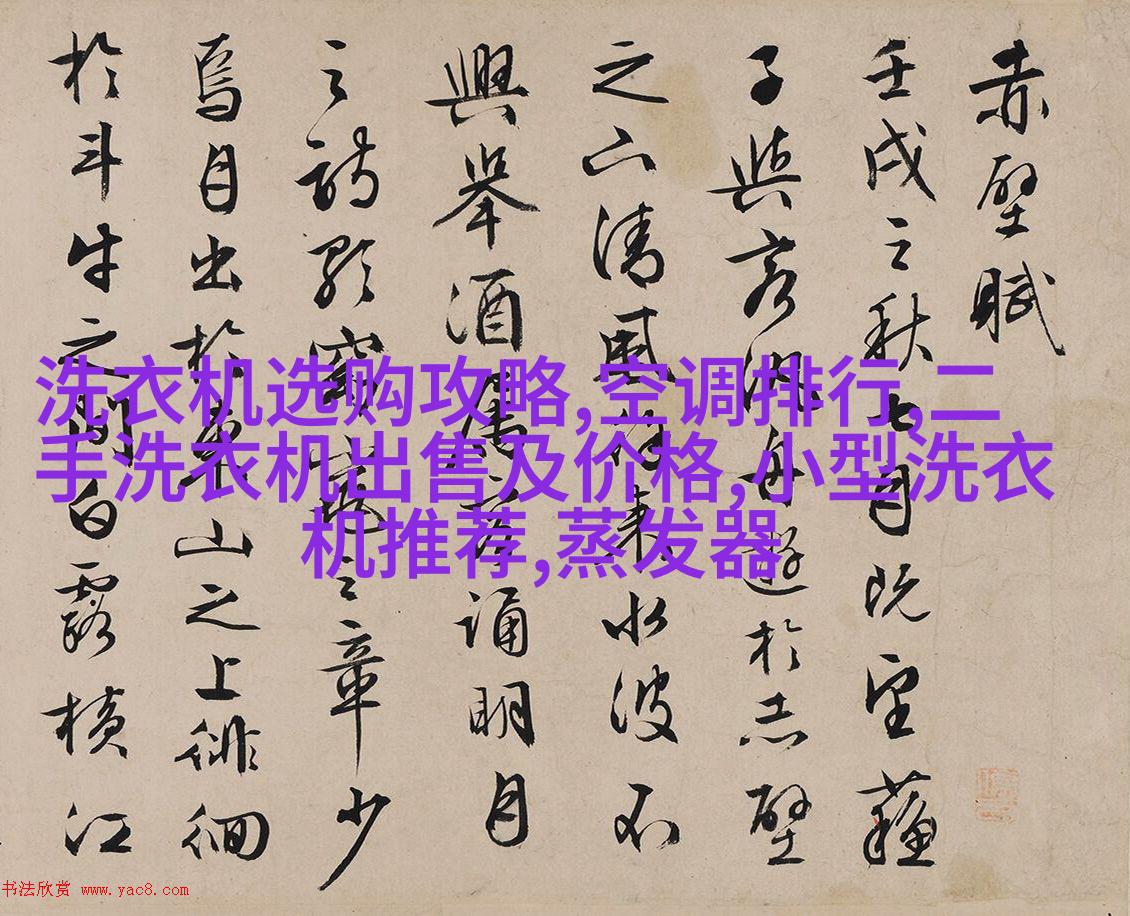 赤壁賦
壬戌之秋七月既望蘓
子與客泛舟遊於赤壁
之下清風徐来水波不
興舉酒屬客誦明月
之詩歌窈窕之章少
焉月出於東山之上徘徊
於斗牛之間白露横江
洗衣机选购攻略,空调排行,二
手洗衣机出售及价格,小型洗衣
机推荐,蒸发器
书法欣赏 www.yac8.com